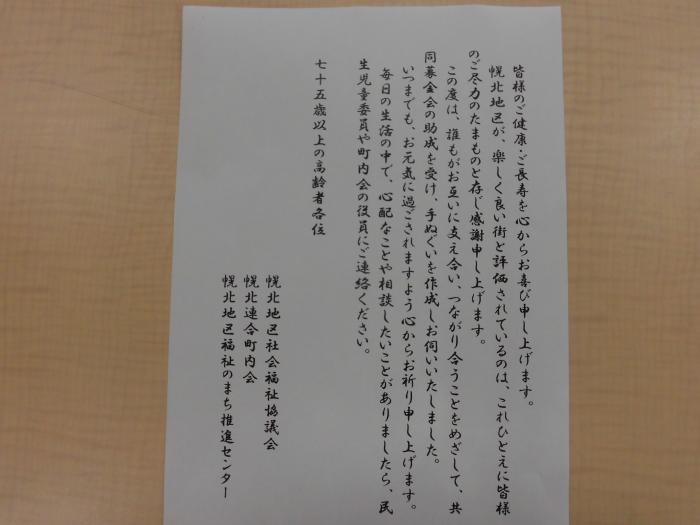 皆様のご健康・ご長寿を心からお喜び申し上げます。
幌北地区が、楽しく良い街と評価されているのは、これひとえに皆様
のご尽力のたまものと存じ感謝申し上げます。
この度は、誰もがお互いに支え合い、つながり合うことをめざして、共
同募金会の助成を受け、手ぬぐいを作成しお伺いいたしました。
いつまでも、お元気に過ごされますよう心からお祈り申し上げます。
毎日の生活の中で、心配なことや相談したいことがありましたら、民
生児童委員や町内会の役員にご連絡ください。
七十五歳以上の高齢者各位
幌北地区社会福祉協議会
幌北連合町内会
幌北地区福祉のまち推進センター